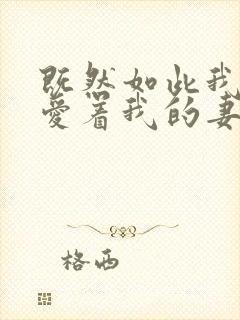 既然如此我
爱着我的妻
格西